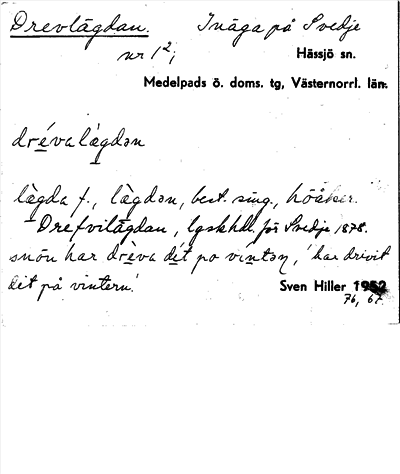 Drevlägdan. Inäga på Svedje
nr 1²;
Hässjö sn.
Medelpads ö. doms. tg, Västernorrl. län.
dréva lägdən
lägda f., lägdən, best. sing., höåker.
Drefvilägdan, lgskhdl. för Svedje 1878.
snön har drèva dét po vintəɳ, 'har drivit
dit på vintern.'
Sven Hiller 1952
76, 67.